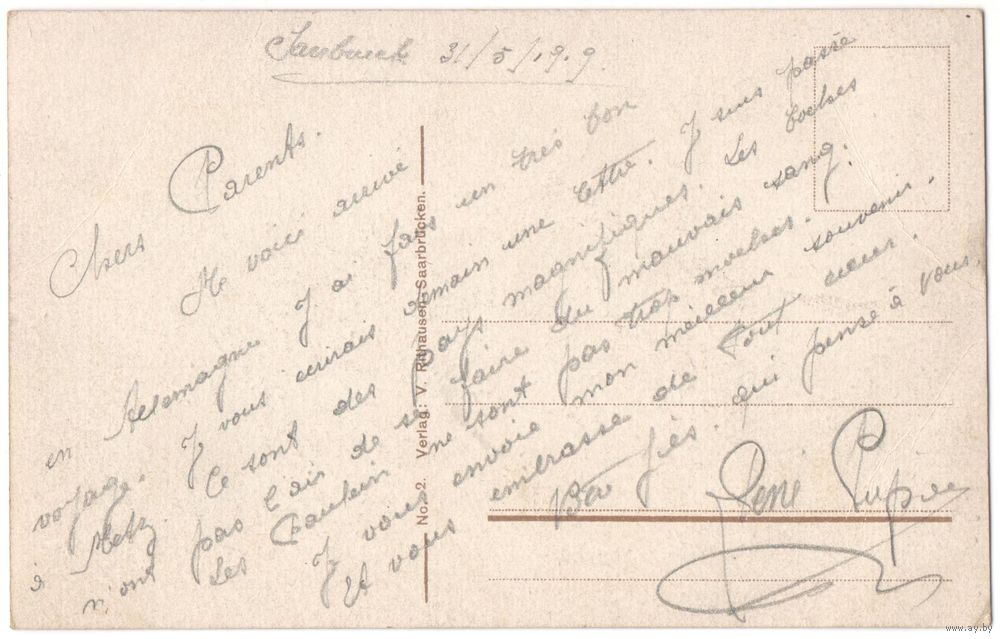 Sarbruck 31/5/19.9.
Chers Parents.
Me voici arrivé
en Allemagne J ai fais un très bon
voyage. J vous écrirais demain une lettre. J suis passé
à Metz. Ce sont des pays magnifiques. Les boches
n'ont pas l'air de se faire du mauvais sang.
Les ne sont pas trop moches.
J vous envoie mon meilleur souvenir.
Et vous embrasse de tout cœur.
fils. qui pense à vous.
René
No. 2. Verlag: V. Rithausen, Saarbrücken.
www.ay.by